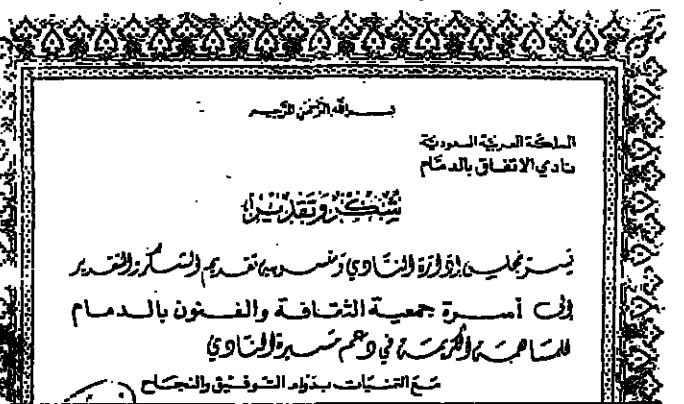 بسم الله الرحمن الرحيم
المملكة العربية السعودية
نادي الاتفاق بالدمام
شكر وتقدير
يسر مجلس إدارة النادي ومنسوبيه تقديم الشكر والتقدير
إلى أسرة جمعية الثقافة والفنون بالدمام
للمساهمة الكريمة في دعم مسيرة النادي
مع التمنيات بدوام التوفيق والنجاح